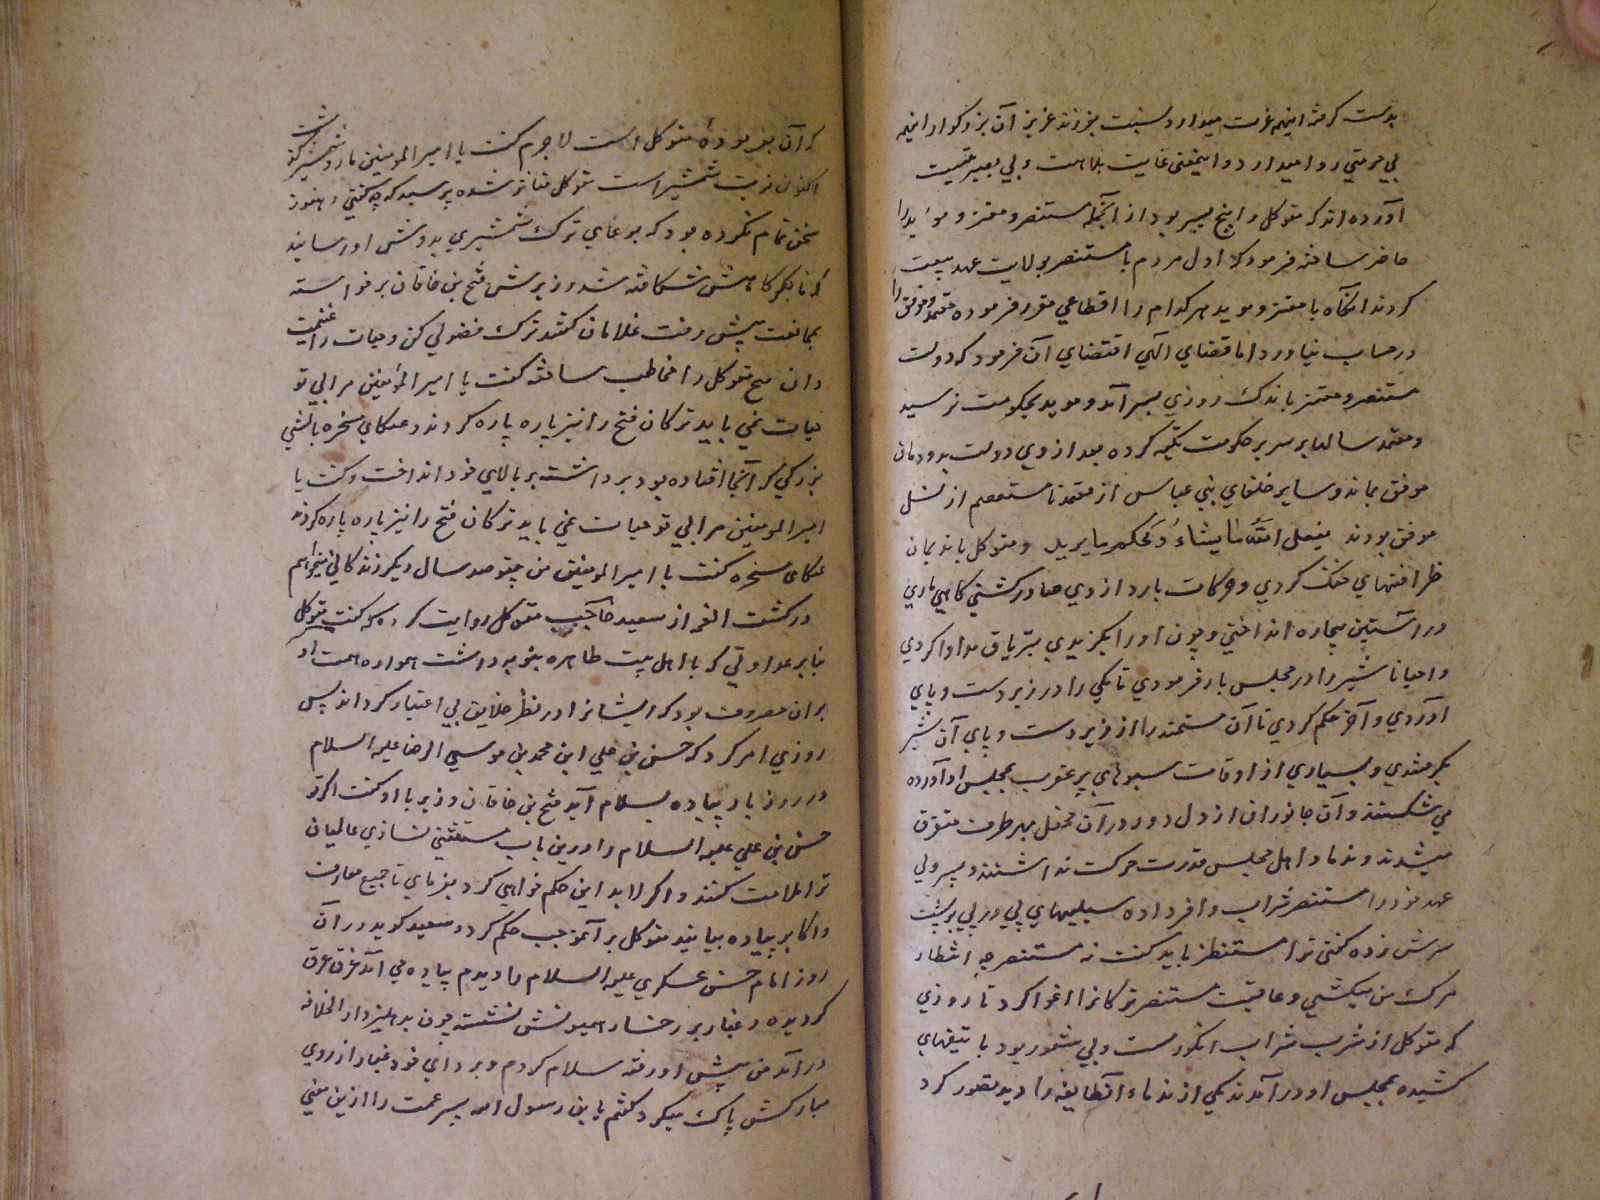 بدست گرفته اینهمه عزت میدارد و نسبت بفرزند عزیز آن بزرگوار اینهمه
بی حرمتی روا میدارد و اینمعنی غایت بلاهت و بی بصیرتیست
آورده اند که متوکل را پنج پسر بود از آنجمله مستنصر و معتز و موید را
حاضر ساخته فرمود که اول مردم با مستنصر بولایت عهد بیعت
کردند آنگاه با معتز و موید هر کدام را اقطاعی مقرر فرموده معتمد و موفق را
در حساب نیاورد اما قضای الهی اقتضای آن فرمود که دولت
مستنصر و معتز باندک روزی بسر آمد و موید بحکومت نرسید
و معتمد سالها بر سریر حکومت تکیه کرده بعد از وی دولت بدودمان
موفق بماند و سایر خلفای بنی عباس از معتمد تا مستعصم از نسل
موفق بودند یفعل الله ما یشاء و یحکم ما یرید و متوکل با ندیمان
ظرافتهای خنک کردی و حرکات بارد از وی صادر گشتی گاهی ماری
در آستین بیچاره انداختی و چون او را بگزیدی بتریاق مداوا کردی
و احیانا شیر را در مجلس بار فرمودی تا یکی را در زیر دست و پای
آوردی و آخر حکم کردی تا آن مستمند را از زیر دست و پای آن شیر
بکشیدندی و بسیاری از اوقات سبوهای پر عقرب بمجلس او آورده
می شکستند و آن جانوران از دل دور در آن محفل بهر طرف متفرق
میشدند و ندما و اهل مجلس قدرت حرکت نداشتند و پسر ولی
عهد خود را مستنصر شراب وافر داده سیلیهای پی در پی بر پشت
سرش زده گفتی ترا مستنظر باید گفت نه مستنصر چه انتظار
مرگ من میکشی و عاقبت مستنصر ترکانرا اغوا کرد تا روزی
که متوکل از شرب شراب انگور مست و بی شعور بود با تیغهای
کشیده بمجلس او در آمدند یکی از ندماء آنطایفه را دید تصور کرد
که آن بفرموده متوکل است لاجرم گفت یا امیر المومنین مار و شیر گذشت
اکنون نوبت شمشیر است متوکل متاثر شده پرسید که چه گفتی و هنوز
سخن تمام نکرده بود که بوغای ترک شمشیری بدوشش رسانید
که تا جگرگاهش شکافته شد وزیرش فتح بن خاقان برخواسته
بممانعت پیش رفت غلامان گفتند ترک فضولی کن و حیات را غنیمت
دان فتح متوکل را مخاطب ساخته گفت یا امیر المومنین مرا بی تو
حیات نمی باید ترکان فتح را نیز پاره پاره کردند و عکای مسخره بالشی
بزرگی که آنجا افتاده بود برداشته بر بالای خود انداخت و گفت یا
امیر المومنین مرا بی تو حیات نمی باید ترکان فتح را نیز پاره پاره کردند
عکای مسخره گفت یا امیر المومنین من بیتو صد سال دیگر زندگانی میخواهم
در کشف الغمه از سعید حاجب متوکل روایت کرده که گفت متوکل
بنابر عداوتی که با اهل بیت طاهره نبویه داشت همواره همت او
بر آن مصروف بود که ایشانرا در نظر خلایق بی اعتبار گرداند پس
روزی امر کرد که حسن بن علی ابن محمد بن موسی الرضا علیه السلام
در روز بار پیاده بسلام آید فتح بن خاقان وزیر با او گفت اگر تو
حسن بن علی علیه السلام را درین باب مستثنی نسازی عالمیان
ترا ملامت کنند و اگر لابد این حکم خواهی کرد بفرمای تا جمیع معارف
و اکابر پیاده بیایند متوکل بر آنموجب حکم کرد و سعید گوید در آن
روز امام حسن عسکری علیه السلام را دیدم پیاده می آمد غرق عرق
گردیده و غبار بر رخسار همیونش نشسته چون بدهلیز دار الخلافه
در آمد من پیش او رفته سلام کردم و بردای خود غبار از روی
مبارکش پاک میکردم گفتم یا بن رسول الله پسر عمت را ازین معنی